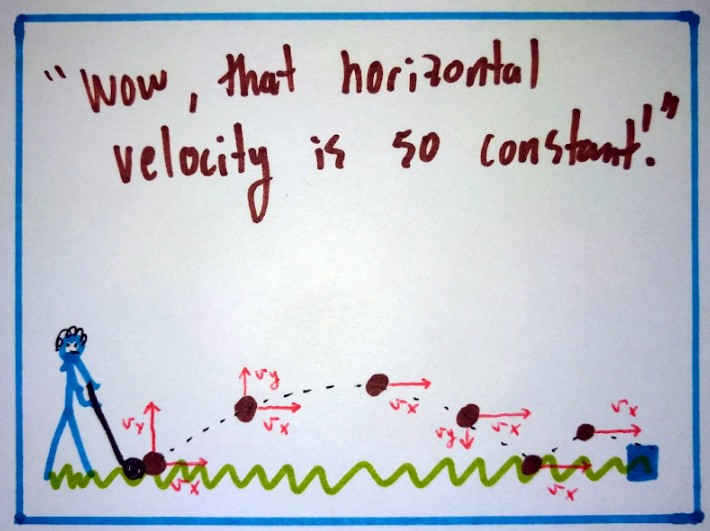 "Wow, that horizontal
velocity is so constant!"
vy
vx
vy
vx
vx
vy
vx
vx
vx